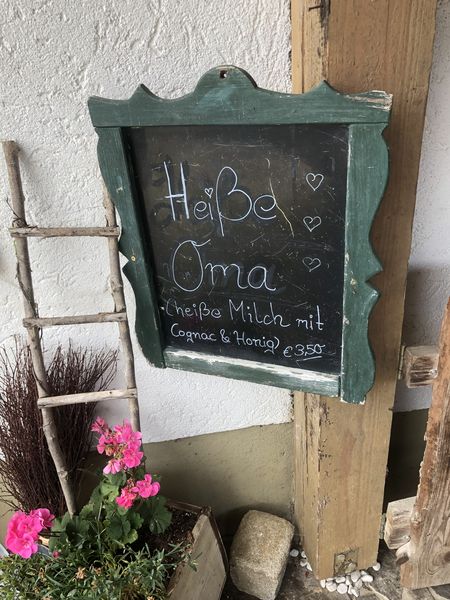 Heiße
Oma
(heiße Milch mit
Cognac & Honig)
€ 3,50